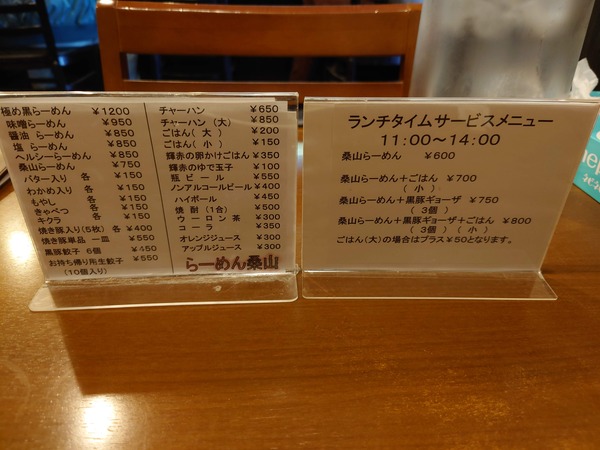 極め黒らーめん ¥1200
味噌らーめん ¥950
醤油 らーめん ¥850
塩 らーめん ¥850
ヘルシーらーめん ¥850
桑山らーめん ¥750
バター入り 各 ¥150
わかめ入り 各 ¥150
もやし 各 ¥150
きゃべつ 各 ¥150
キクラ 各 ¥150
焼き豚入り(5枚) 各 ¥400
焼き豚単品 一皿 ¥550
黒豚餃子 6個 ¥450
お持ち帰り用生餃子 ¥550
(10個入り)
チャーハン ¥650
チャーハン (大) ¥850
ごはん( 大 ) ¥200
ごはん( 小 ) ¥150
輝赤の卵かけごはん ¥350
輝赤のゆで玉子 ¥100
瓶 ビ ー ル ¥550
ノンアルコールビール ¥400
ハイボール ¥450
焼 酎 (1合) ¥500
ウ ー ロ ン 茶 ¥300
コ ー ラ ¥350
オレンジジュース ¥300
アップルジュース ¥300
らーめん桑山
ランチタイムサービスメニュー
11:00～14:00
桑山らーめん ¥600
桑山らーめん＋ごはん ¥700
( 小 )
桑山らーめん＋黒豚ギョーザ ¥750
( 3個 )
桑山らーめん＋黒豚ギョーザ＋ごはん ¥800
( 3個 ) ( 小 )
ごはん(大)の場合はプラス¥50となります。